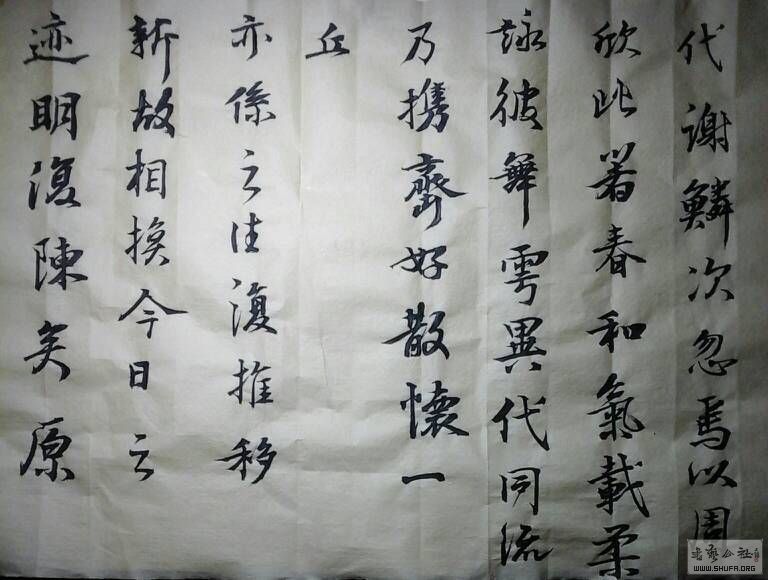 代謝鱗次忽焉以周
欣此暮春和氣載柔
詠彼舞雩異代同流
乃携齊好散懷一
丘
亦係之往復推移
新故相換今日之
迹明復陳矣原
書藝公社
WWW.SHUFA.ORG